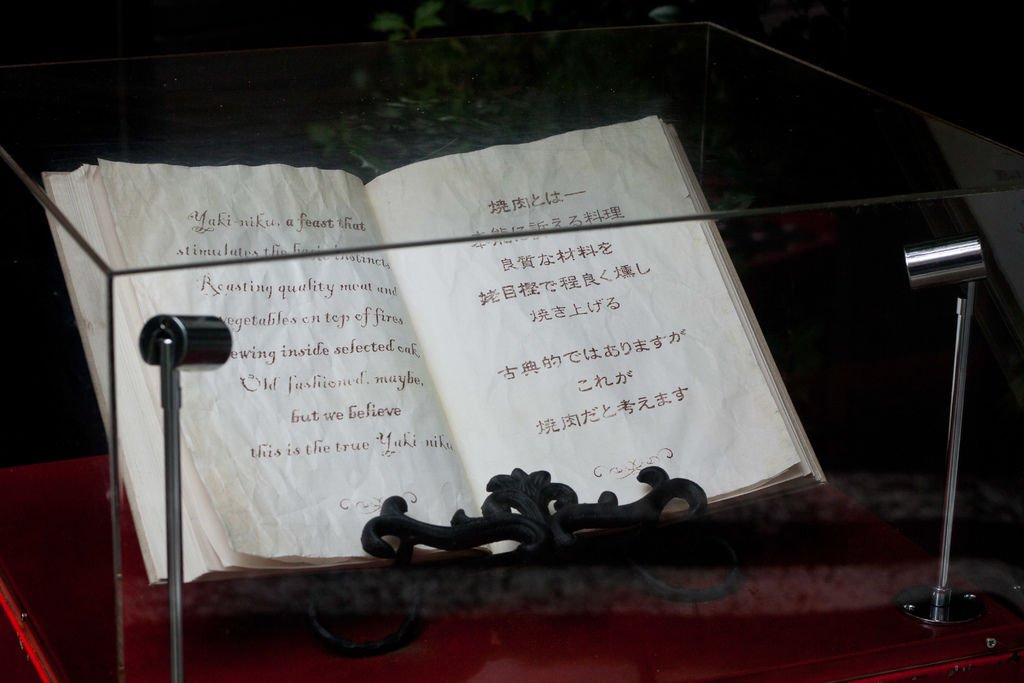 Yaki-niku, a feast that
stimulates the basic instincts
Roasting quality meat and
vegetables on top of fires
ewing inside selected oak
Old fashioned, maybe,
but we believe
this is the true Yaki-niku
焼肉とは―
本能に訴える料理
良質な材料を
姥目樫で程良く燻し
焼き上げる
古典的ではありますが
これが
焼肉だと考えます